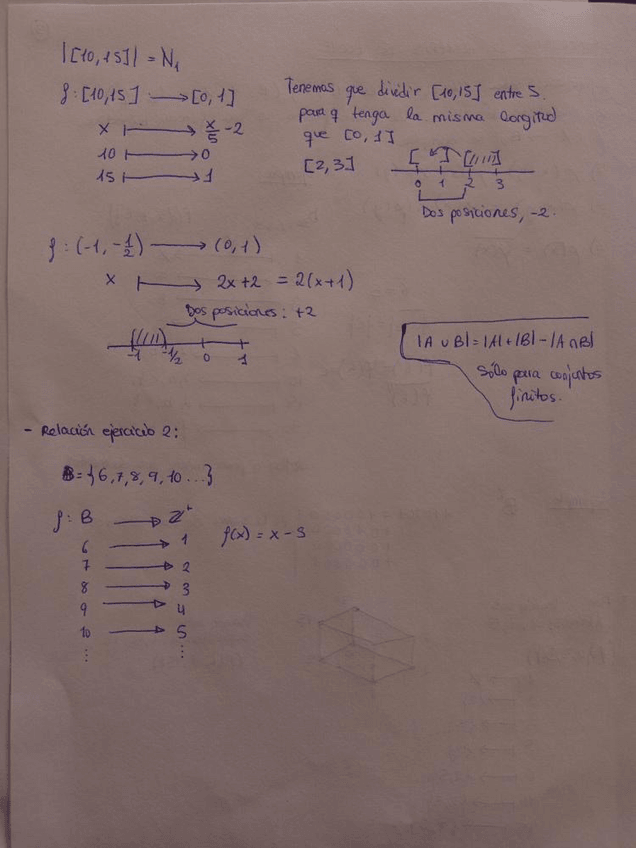 |[10,15]| = ℵ₁
f: [10,15] → [0,1]
x ↦ x/5 - 2
10 ↦ 0
15 ↦ 1
Tenemos que dividir [10,15] entre 5
para q tenga la misma longitud
que [0,1]
[2,3]
[ ] [////]
0 1 2 3
Dos posiciones, -2.
f: (-1, -1/2) → (0,1)
x ↦ 2x+2 = 2(x+1)
Dos posiciones: +2
-1 -1/2 0 1
|A ∪ B| = |A| + |B| - |A ∩ B|
Sólo para conjuntos
finitos.
- Relación ejercicio 2:
B = {6,7,8,9,10...}
f: B → ℤ⁺
6 → 1
7 → 2
8 → 3
9 → 4
10 → 5
⋮ ⋮
f(x) = x - 5